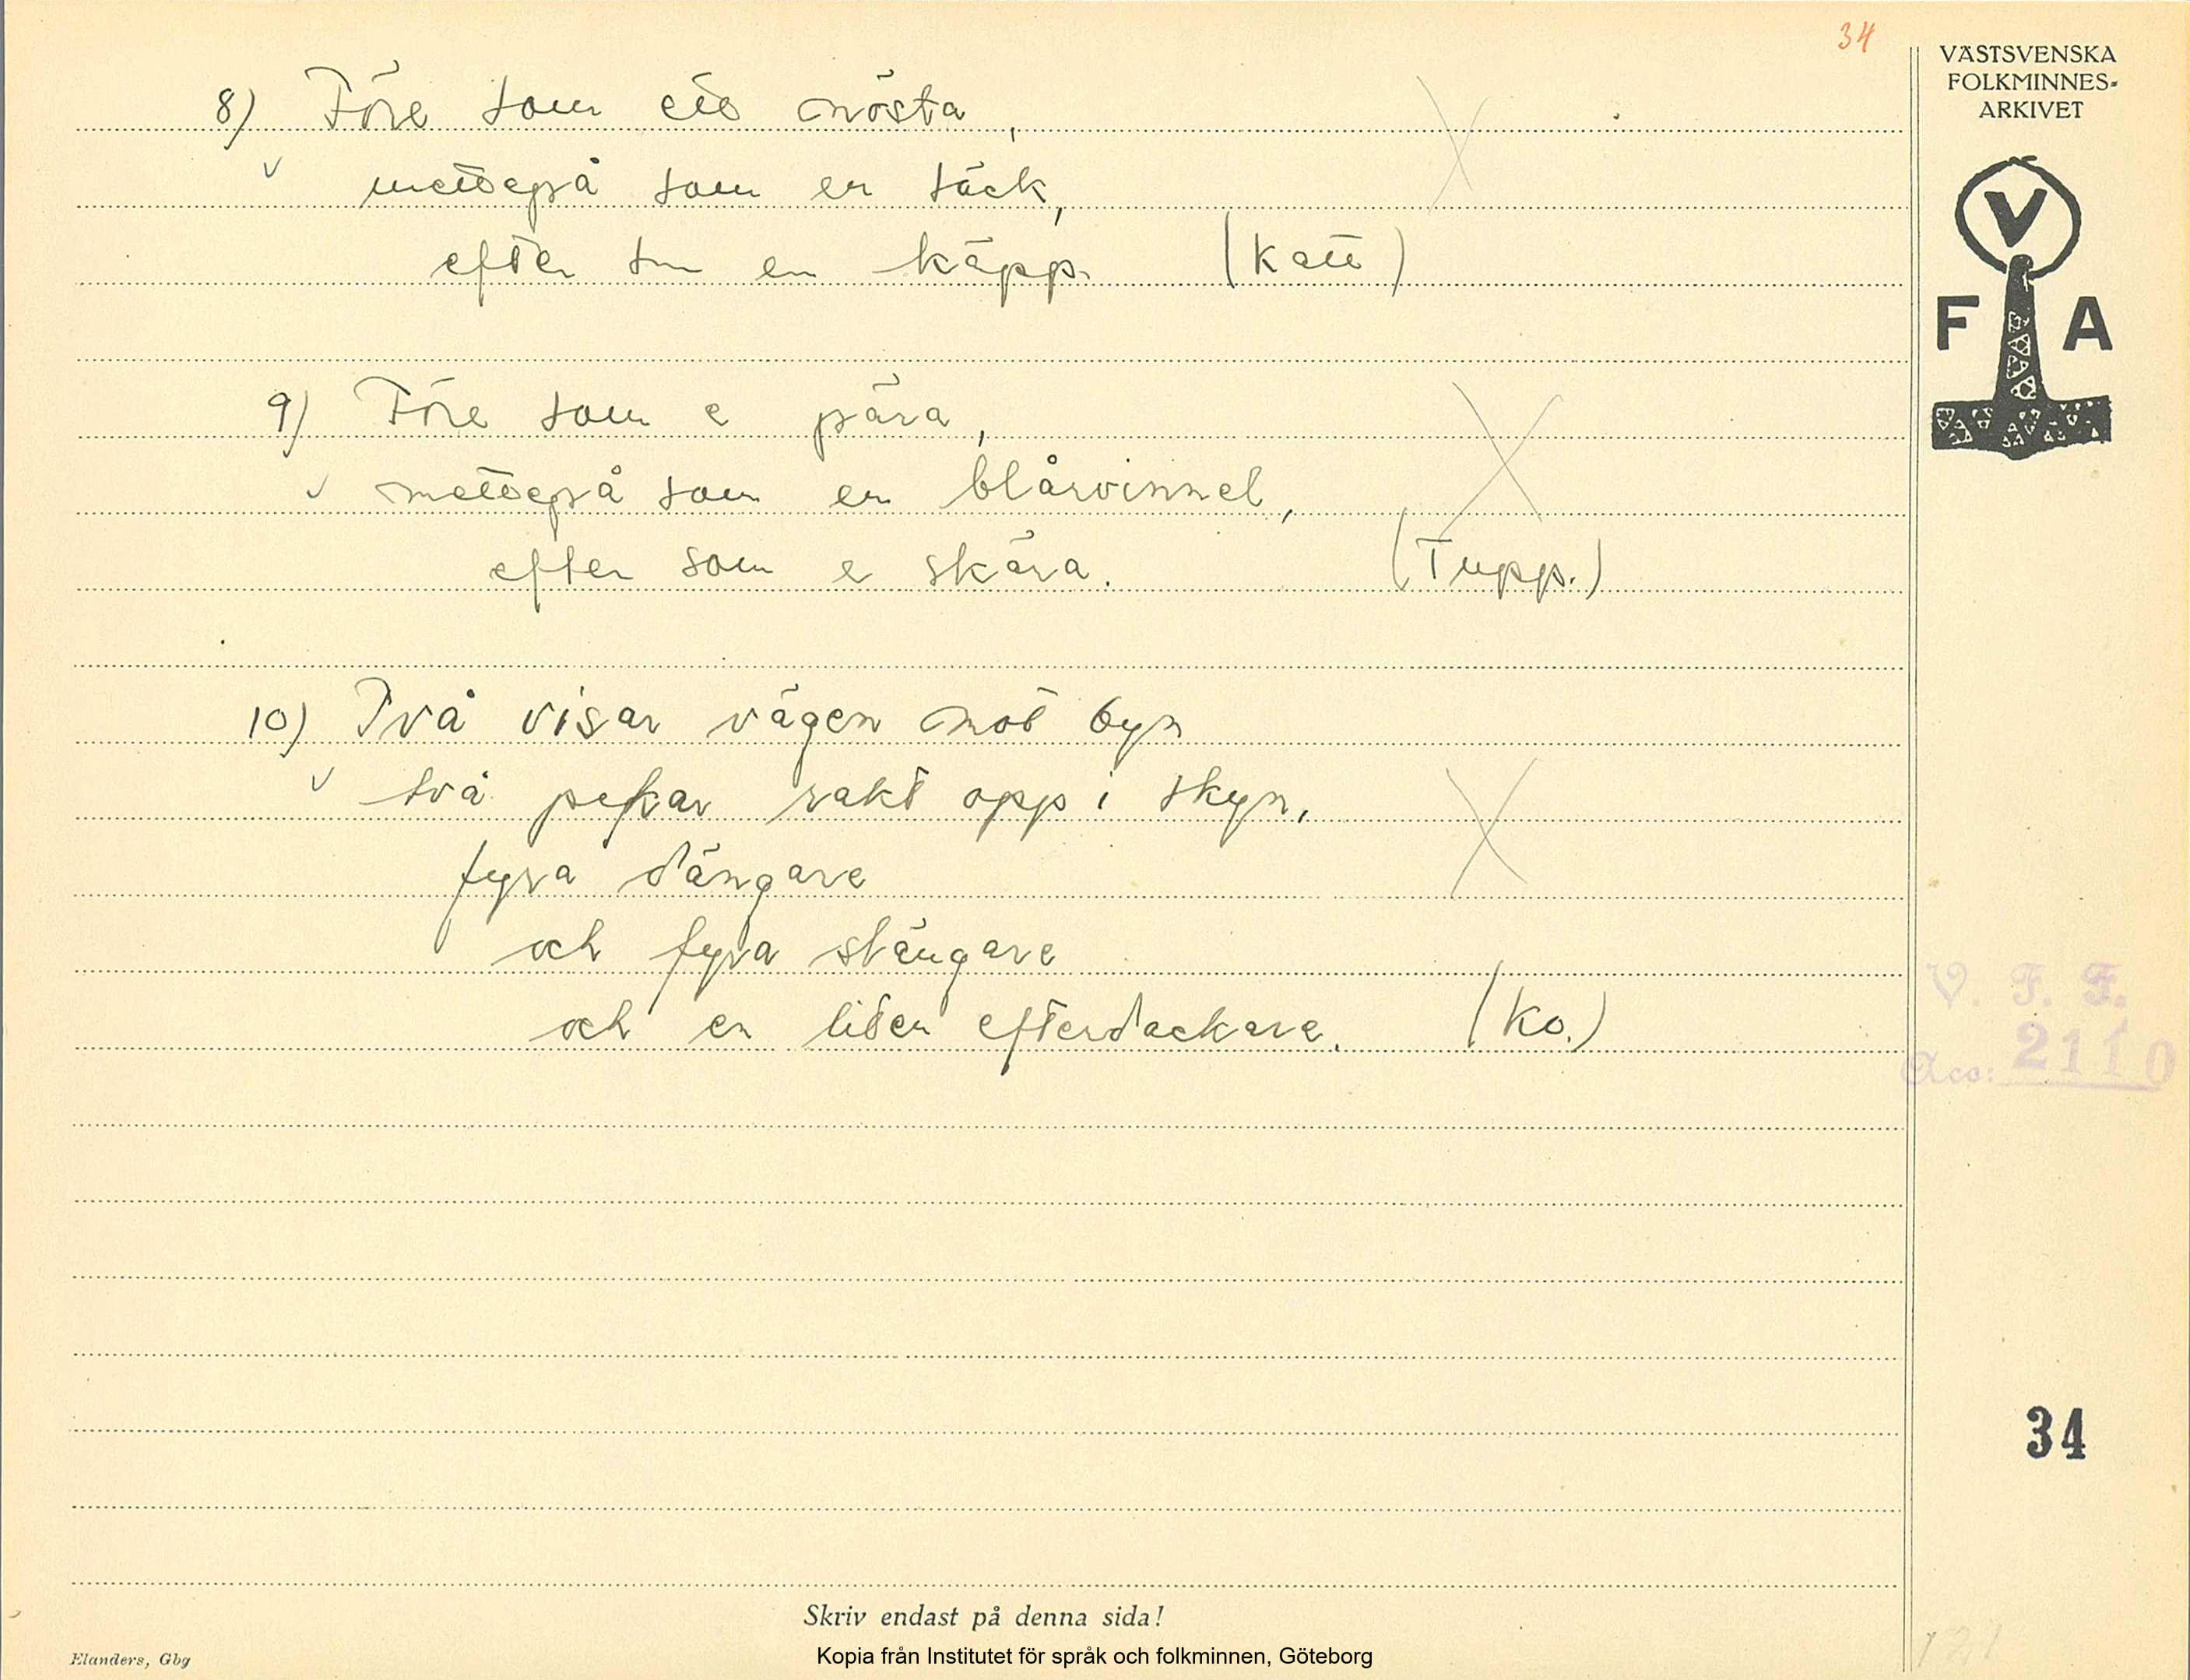 34
VÄSTSVENSKA
FOLKMINNES-
ARKIVET
V
F A
8) Före som ett nösta,
metteså som en säck,
efter som en käpp. (Katt)
9) Före som e pära,
metteså som en blårvinnel,
efter som e skära. (Tupp.)
10) Två visar vägen mot byn
två pekar rakt opp i skyn,
fyra dängare
och fyra slängare
och en liten efterdackare. (Ko.)
V. F. F.
Acc: 2110
34
Skriv endast på denna sida!
Elanders, Gbg
Kopia från Institutet för språk och folkminnen, Göteborg